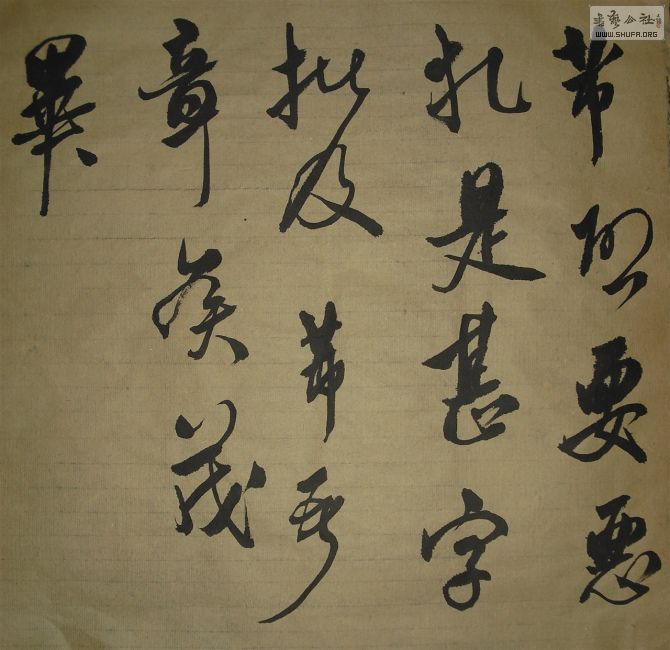 帶 要惡
札是甚字
批及
章矣茂
畢
書藝公社
WWW.SHUFA.ORG